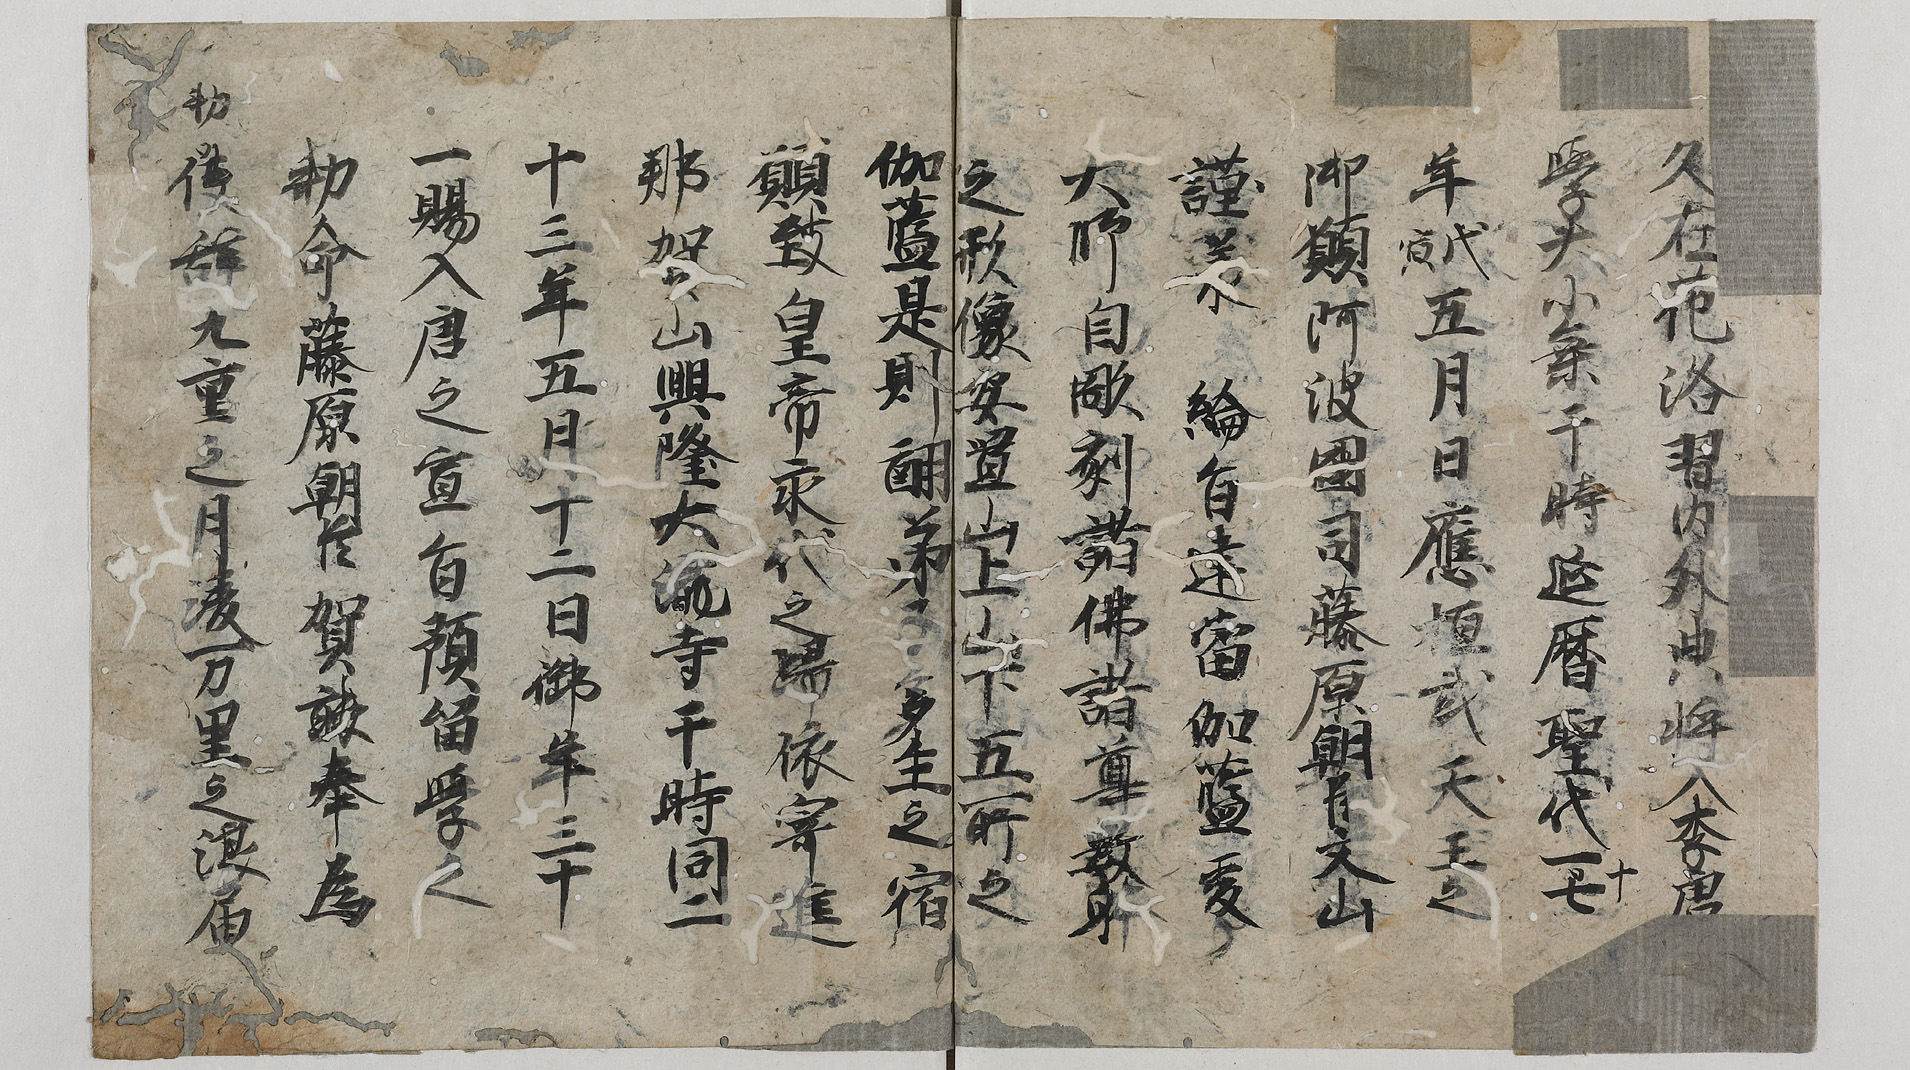 久在范洛習内外典将入李唐
学大小乗于時延暦聖代一七十
年戊寅五月日應桓武天王之
御願阿波國司藤原朝臣文山
謹奉綸旨建當伽藍爰
大師自彫刻諸佛諸尊数躰
之形像安置山上山下五所之
伽藍是則酬弟子多生之宿
願致皇帝永代之帰依寄進
那賀山興隆大瀧寺于時同二
十三年五月十二日御年三十
一賜入唐之宣旨預留学之
勅命藤原朝臣賀誐奉為
勅使辞九重之月凌万里之浪届